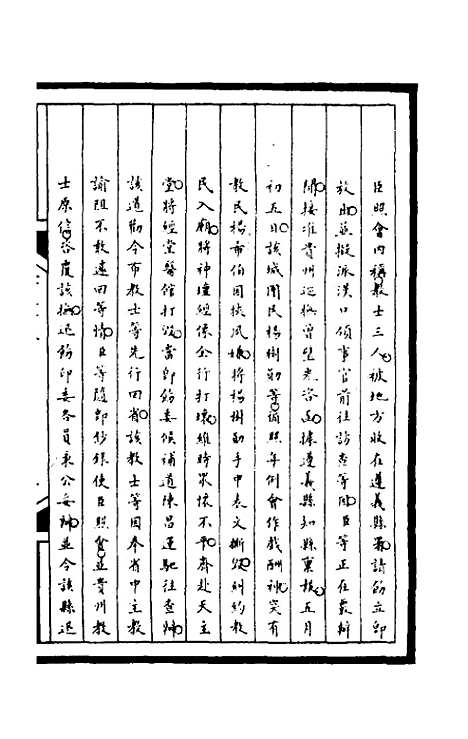 臣照會內稱教士三人被地方收在遵義縣署請飭立即
放由並擬派漢口領事官前往訪查等因臣等正在覈辦
間接准貴州巡撫曾璧光咨函據遵義縣知縣稟報五月
初五日該城團民楊樹勛等循照年例會作戲酬神突有
教民楊希伯因挾夙嫌將楊樹勛手中表文撕毀糾約教
民入廟將神壇經像全行打壞維時眾懷不平齊赴天主
堂將經堂醫館打毀當即飭委候補道陳昌運馳往查辦
該道勸令布教士等先行回省該教士等因奉省中主教
諭阻不敢遠回等情臣等隨即鈔錄使臣照會並貴州教
士原信咨度該撫迅飭印委各員秉公妥辦並令該縣迅